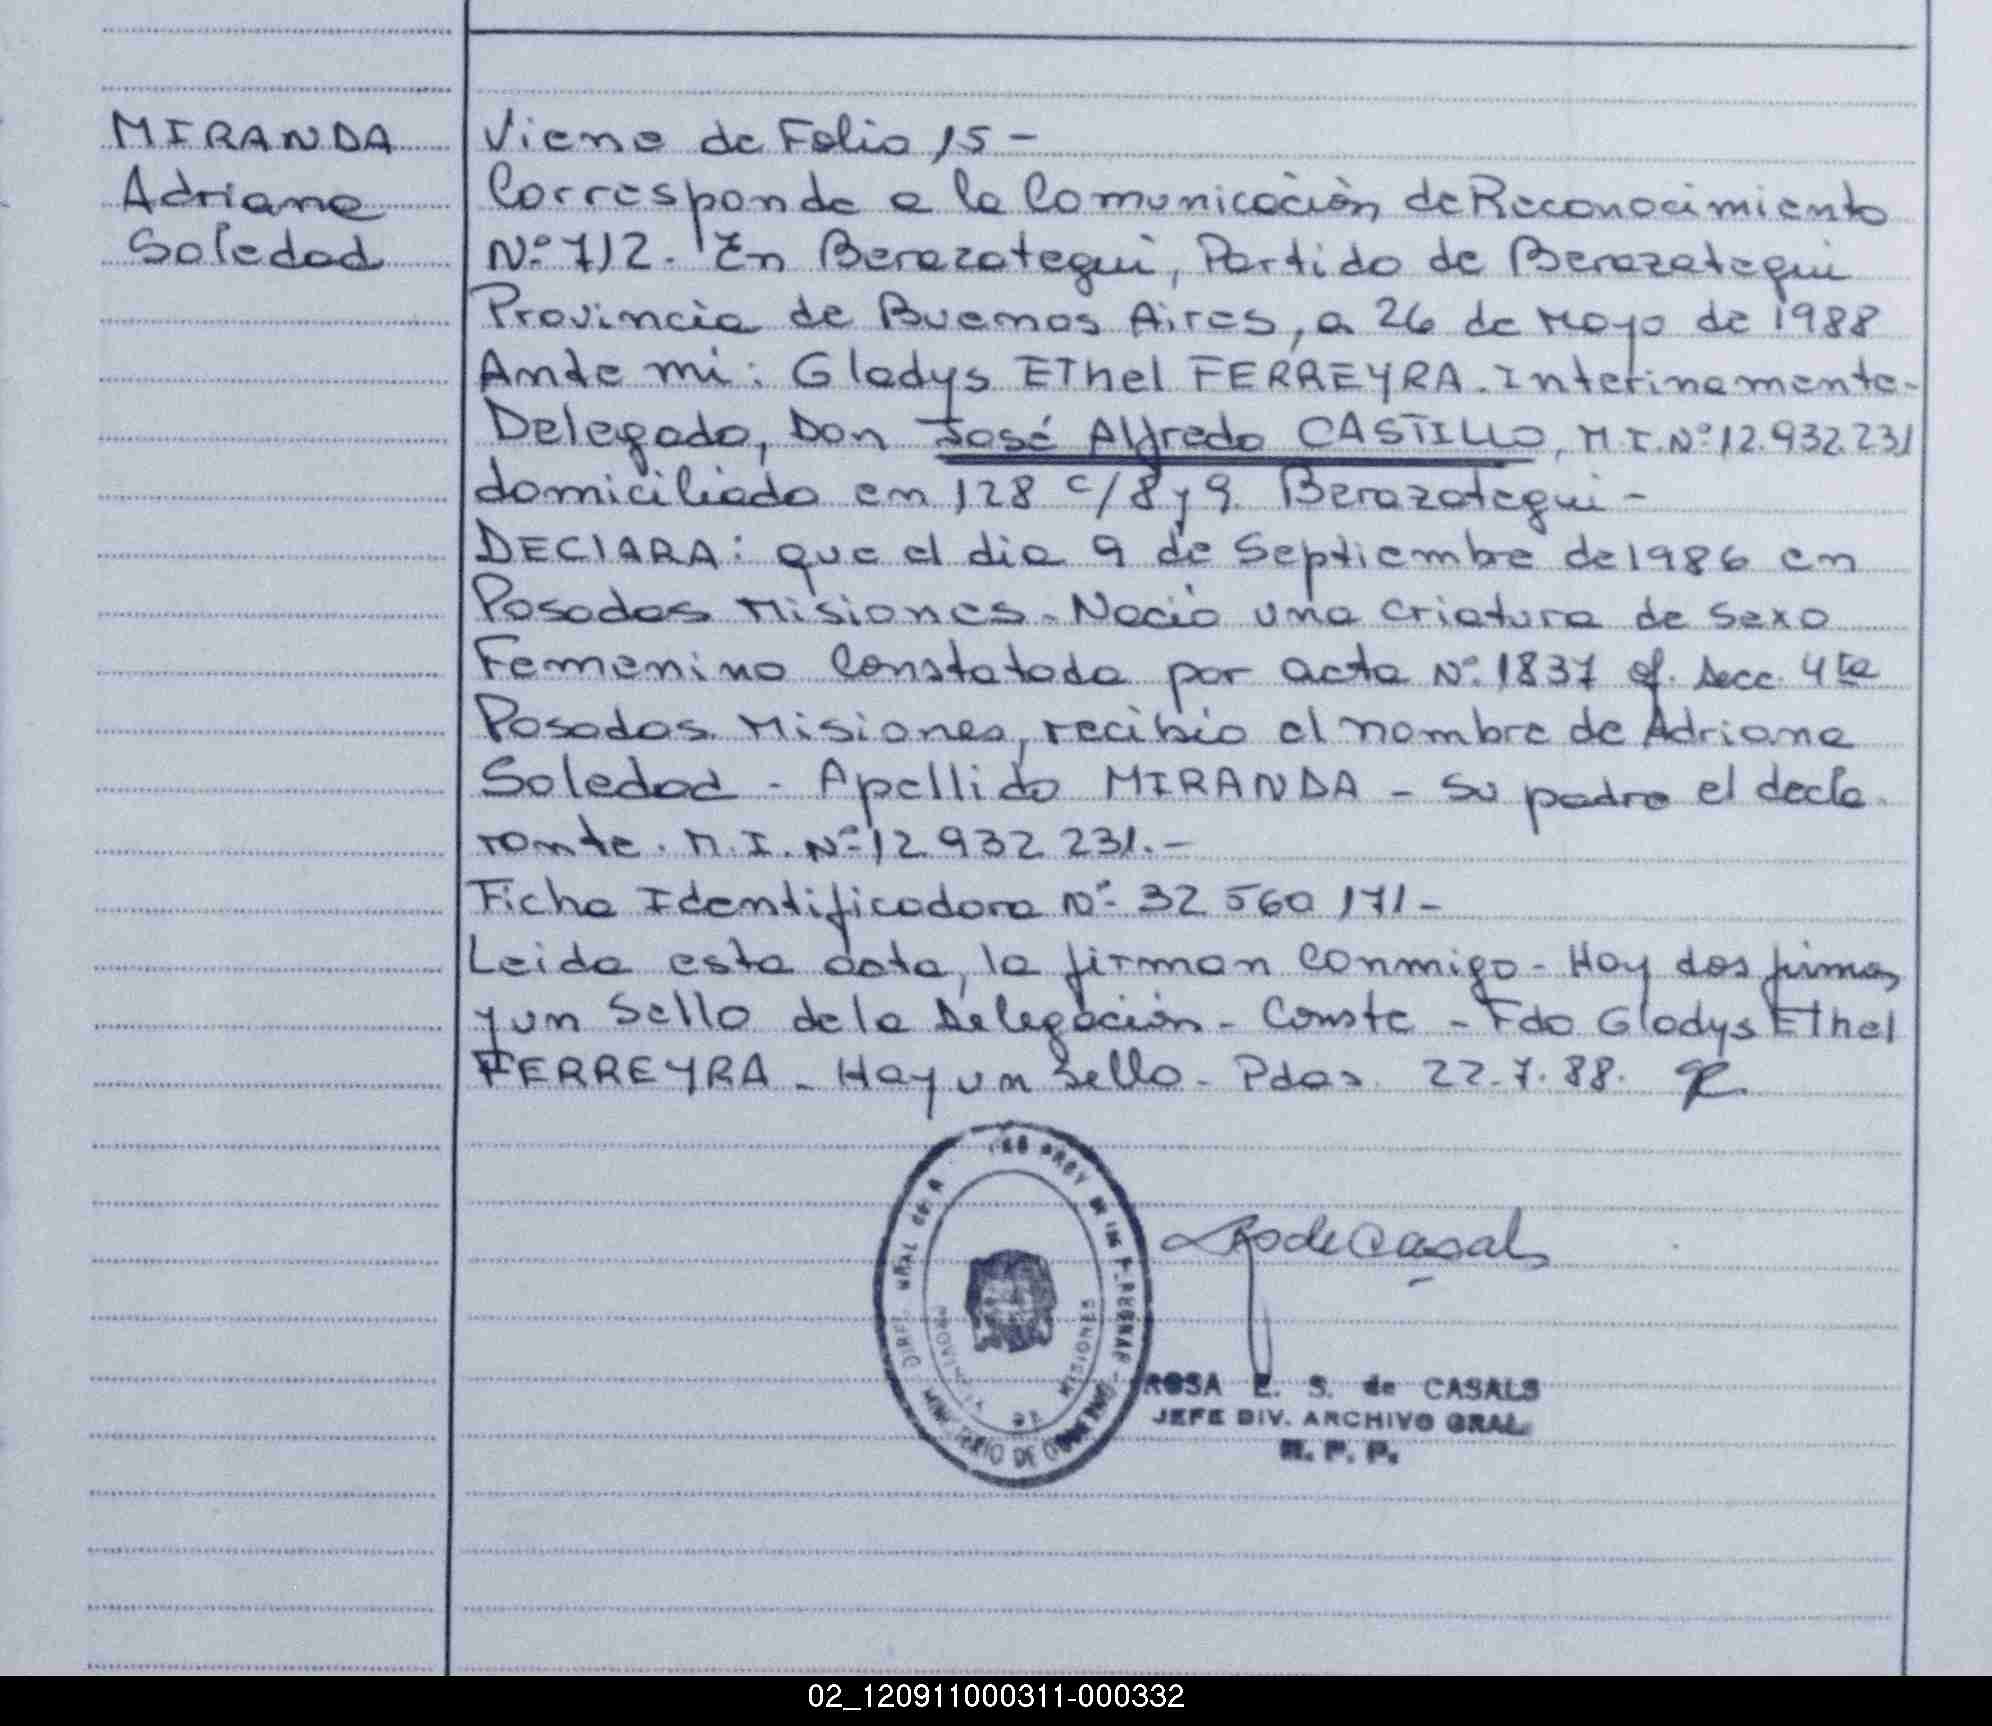 MIRANDA
Adriana
Soledad
Viene de Folio 15 -
Corresponde a la Comunicación de Reconocimiento
Nº 712. En Berazategui, Partido de Berazategui
Provincia de Buenos Aires, a 26 de Mayo de 1988
Ante mi: Gladys Ethel FERREYRA. Interinamente-
Delegado, Don José Alfredo CASTILLO, M.I.Nº 12.932.231
domiciliado en 128 c/8 y 9. Berazategui -
DECLARA: que el dia 9 de Septiembre de 1986 en
Posadas Misiones. Nació una criatura de sexo
Femenino Constatada por acta Nº 1837 of. Secc. 4ta
Posadas. Misiones, recibió el nombre de Adriana
Soledad - Apellido MIRANDA - Su padre el decla
rante. M.I. Nº 12 932 231.-
Ficha Identificadora Nº 32 560 171 -
Leida esta acta, la firman conmigo - Hay dos firmas
y un Sello de la Delegación - Conste - Fdo Gladys Ethel
FERREYRA - Hay un Sello - Pdas. 22.7.88.
PROV DE LAS PERSONAS
MISIONES
MINISTERIO DE GOBIERNO
R de Casals
ROSA E. S. de CASALS
JEFE DIV. ARCHIVO GRAL.
R. P. P.
02_120911000311-000332